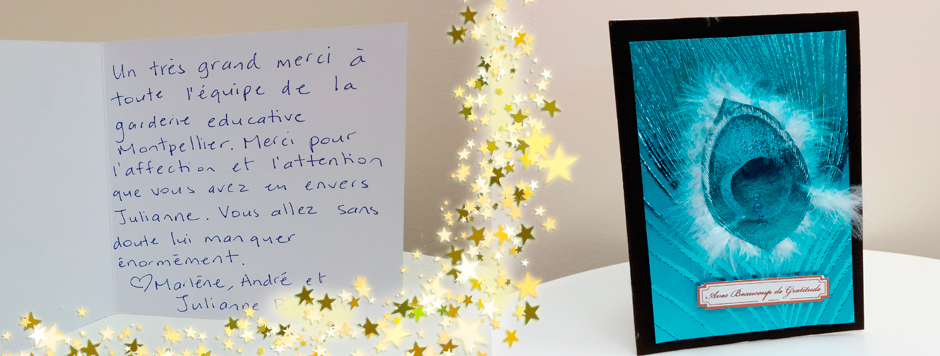 Un très grand merci à
toute l'équipe de la
garderie educative
Montpellier. Merci pour
l'affection et l'attention
que vous avez eu envers
Julianne. Vous allez sans
doute lui manquer
énormément.
♡Marlène, André et
Julianne
Avec Beaucoup de Gratitude